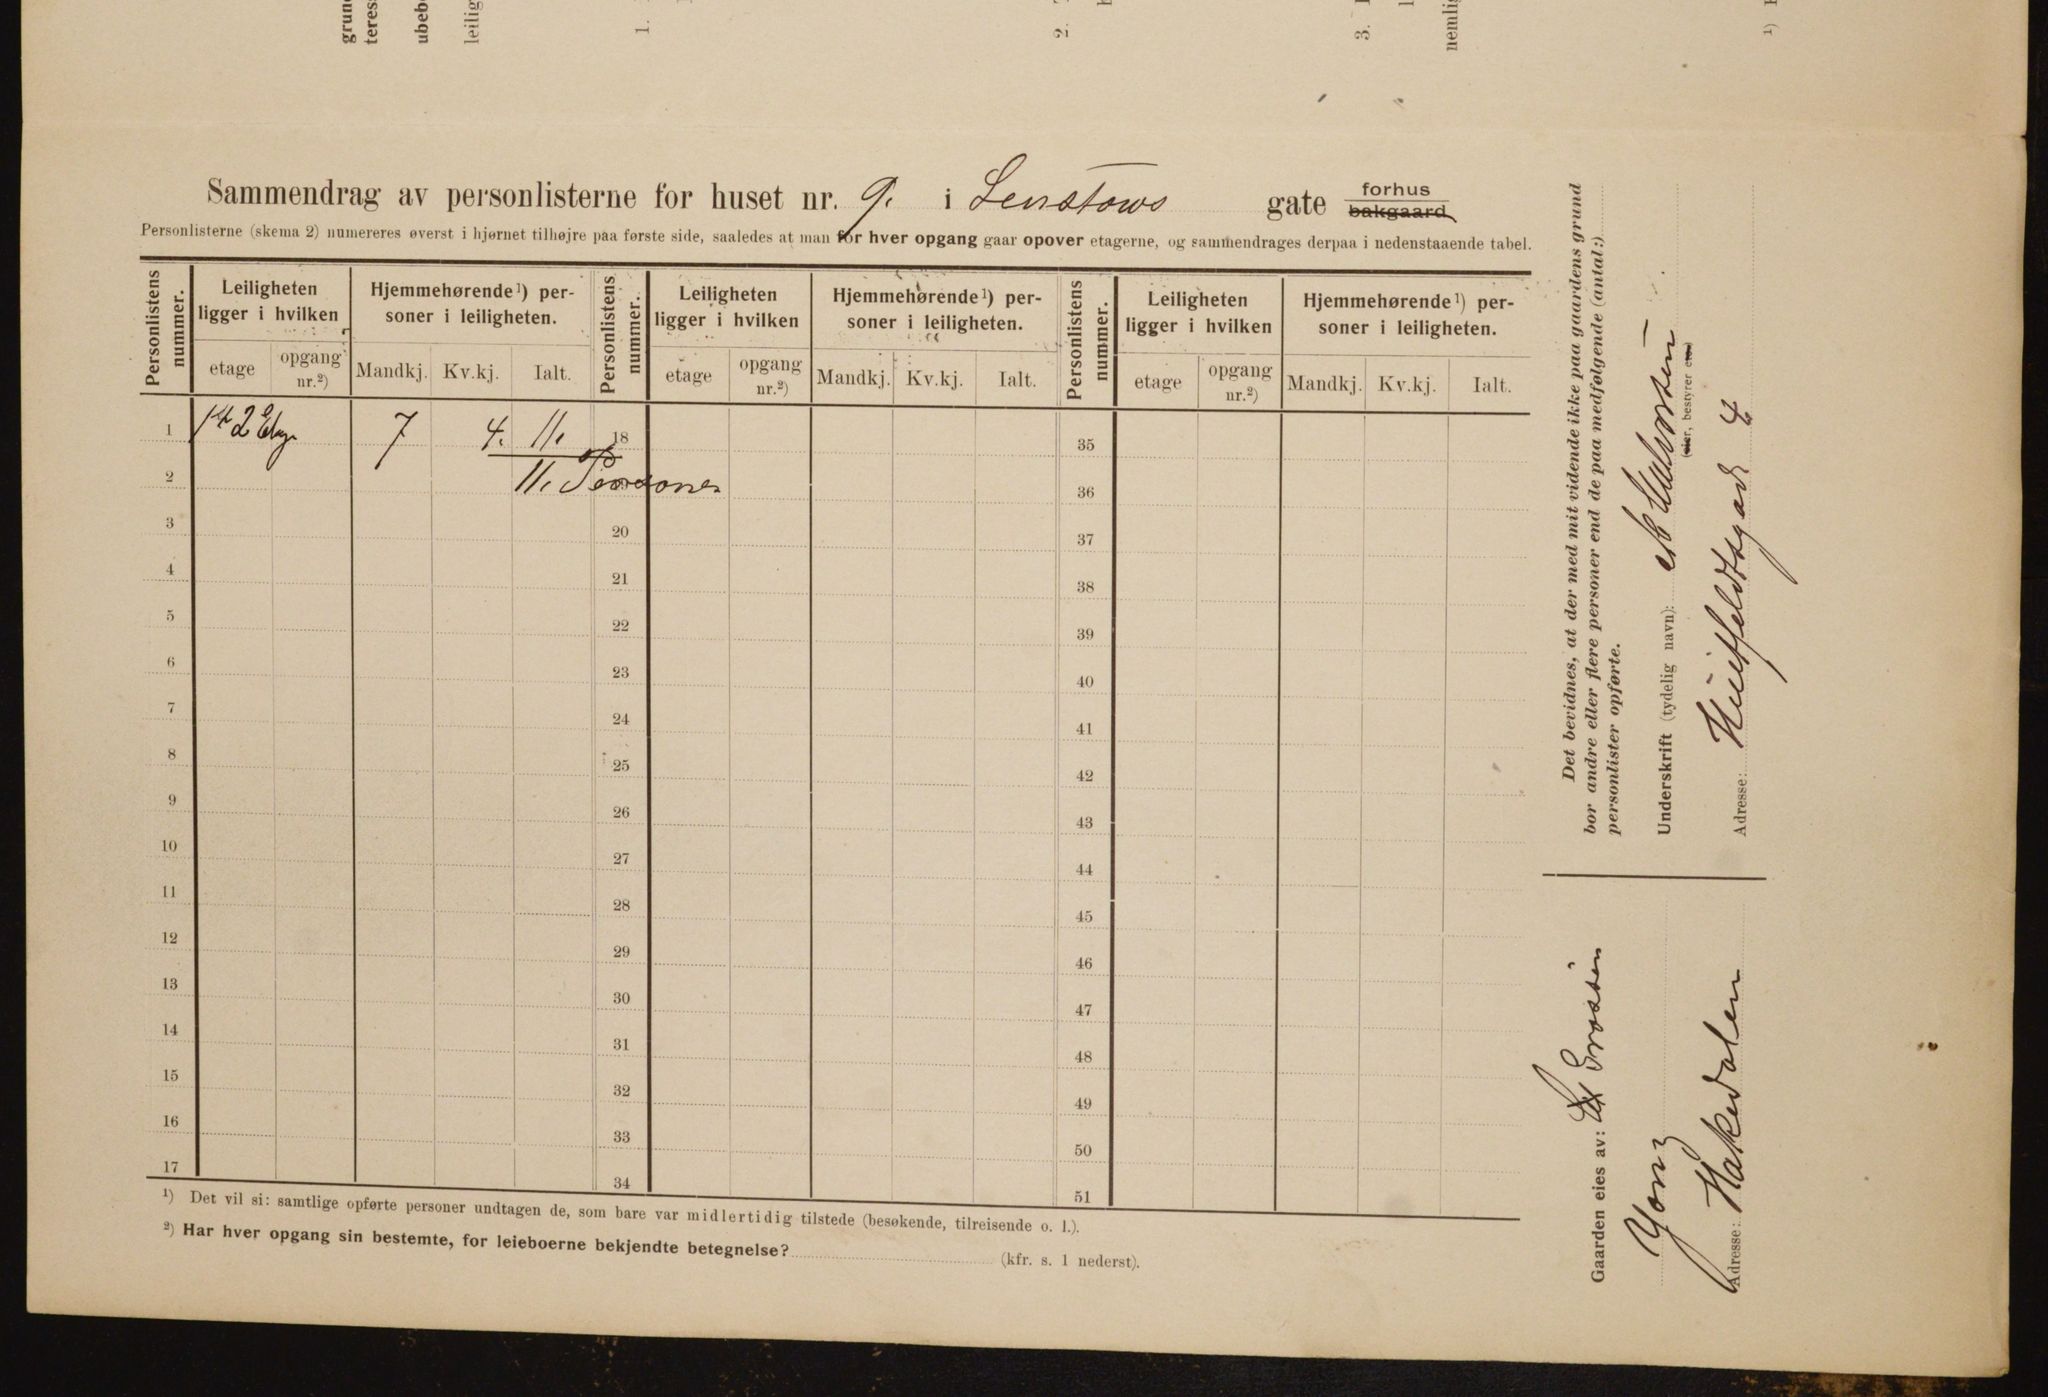 grun
teres
ubeb
leilig
1.
2.
3.
nemlig
1)
Sammendrag av personlisterne for huset nr. 9. i Lenstows gate forhus
bakgaard
Personlisterne (skema 2) numereres øverst i hjørnet tilhøjre paa første side, saaledes at man for hver opgang gaar opover etagerne, og sammendrages derpaa i nedenstaaende tabel.
Personlistens nummer.
Leiligheten ligger i hvilken
Hjemmehørende¹) personer i leiligheten.
etage
opgang nr.²)
Mandkj.
Kv.kj.
Ialt.
Personlistens nummer.
Leiligheten ligger i hvilken
Hjemmehørende¹) personer i leiligheten.
etage
opgang nr.²)
Mandkj.
Kv.kj.
Ialt.
Personlistens nummer.
Leiligheten ligger i hvilken
Hjemmehørende¹) personer i leiligheten.
etage
opgang nr.²)
Mandkj.
Kv.kj.
Ialt.
1 2 Etage 7 4. 11. 18 35
2 11. Personer 36
3 20 37
4 21 38
5 22 39
6 23 40
7 24 41
8 25 42
9 26 43
10 27 44
11 28 45
12 29 46
13 30 47
14 31 48
15 32 49
16 33 50
17 34 51
¹) Det vil si: samtlige opførte personer undtagen de, som bare var midlertidig tilstede (besøkende, tilreisende o. l.).
²) Har hver opgang sin bestemte, for leieboerne bekjendte betegnelse? (kfr. s. 1 nederst).
Det bevidnes, at der med mit vidende ikke paa gaardens grund
bor andre eller flere personer end de paa medfølgende (antal:)
personlister opførte.
Underskrift (tydelig navn): Halvorsen
(eier, bestyrer etc.)
Adresse: Huitfeldtsgad 4
Gaarden eies av:
Adresse: Hakedalen